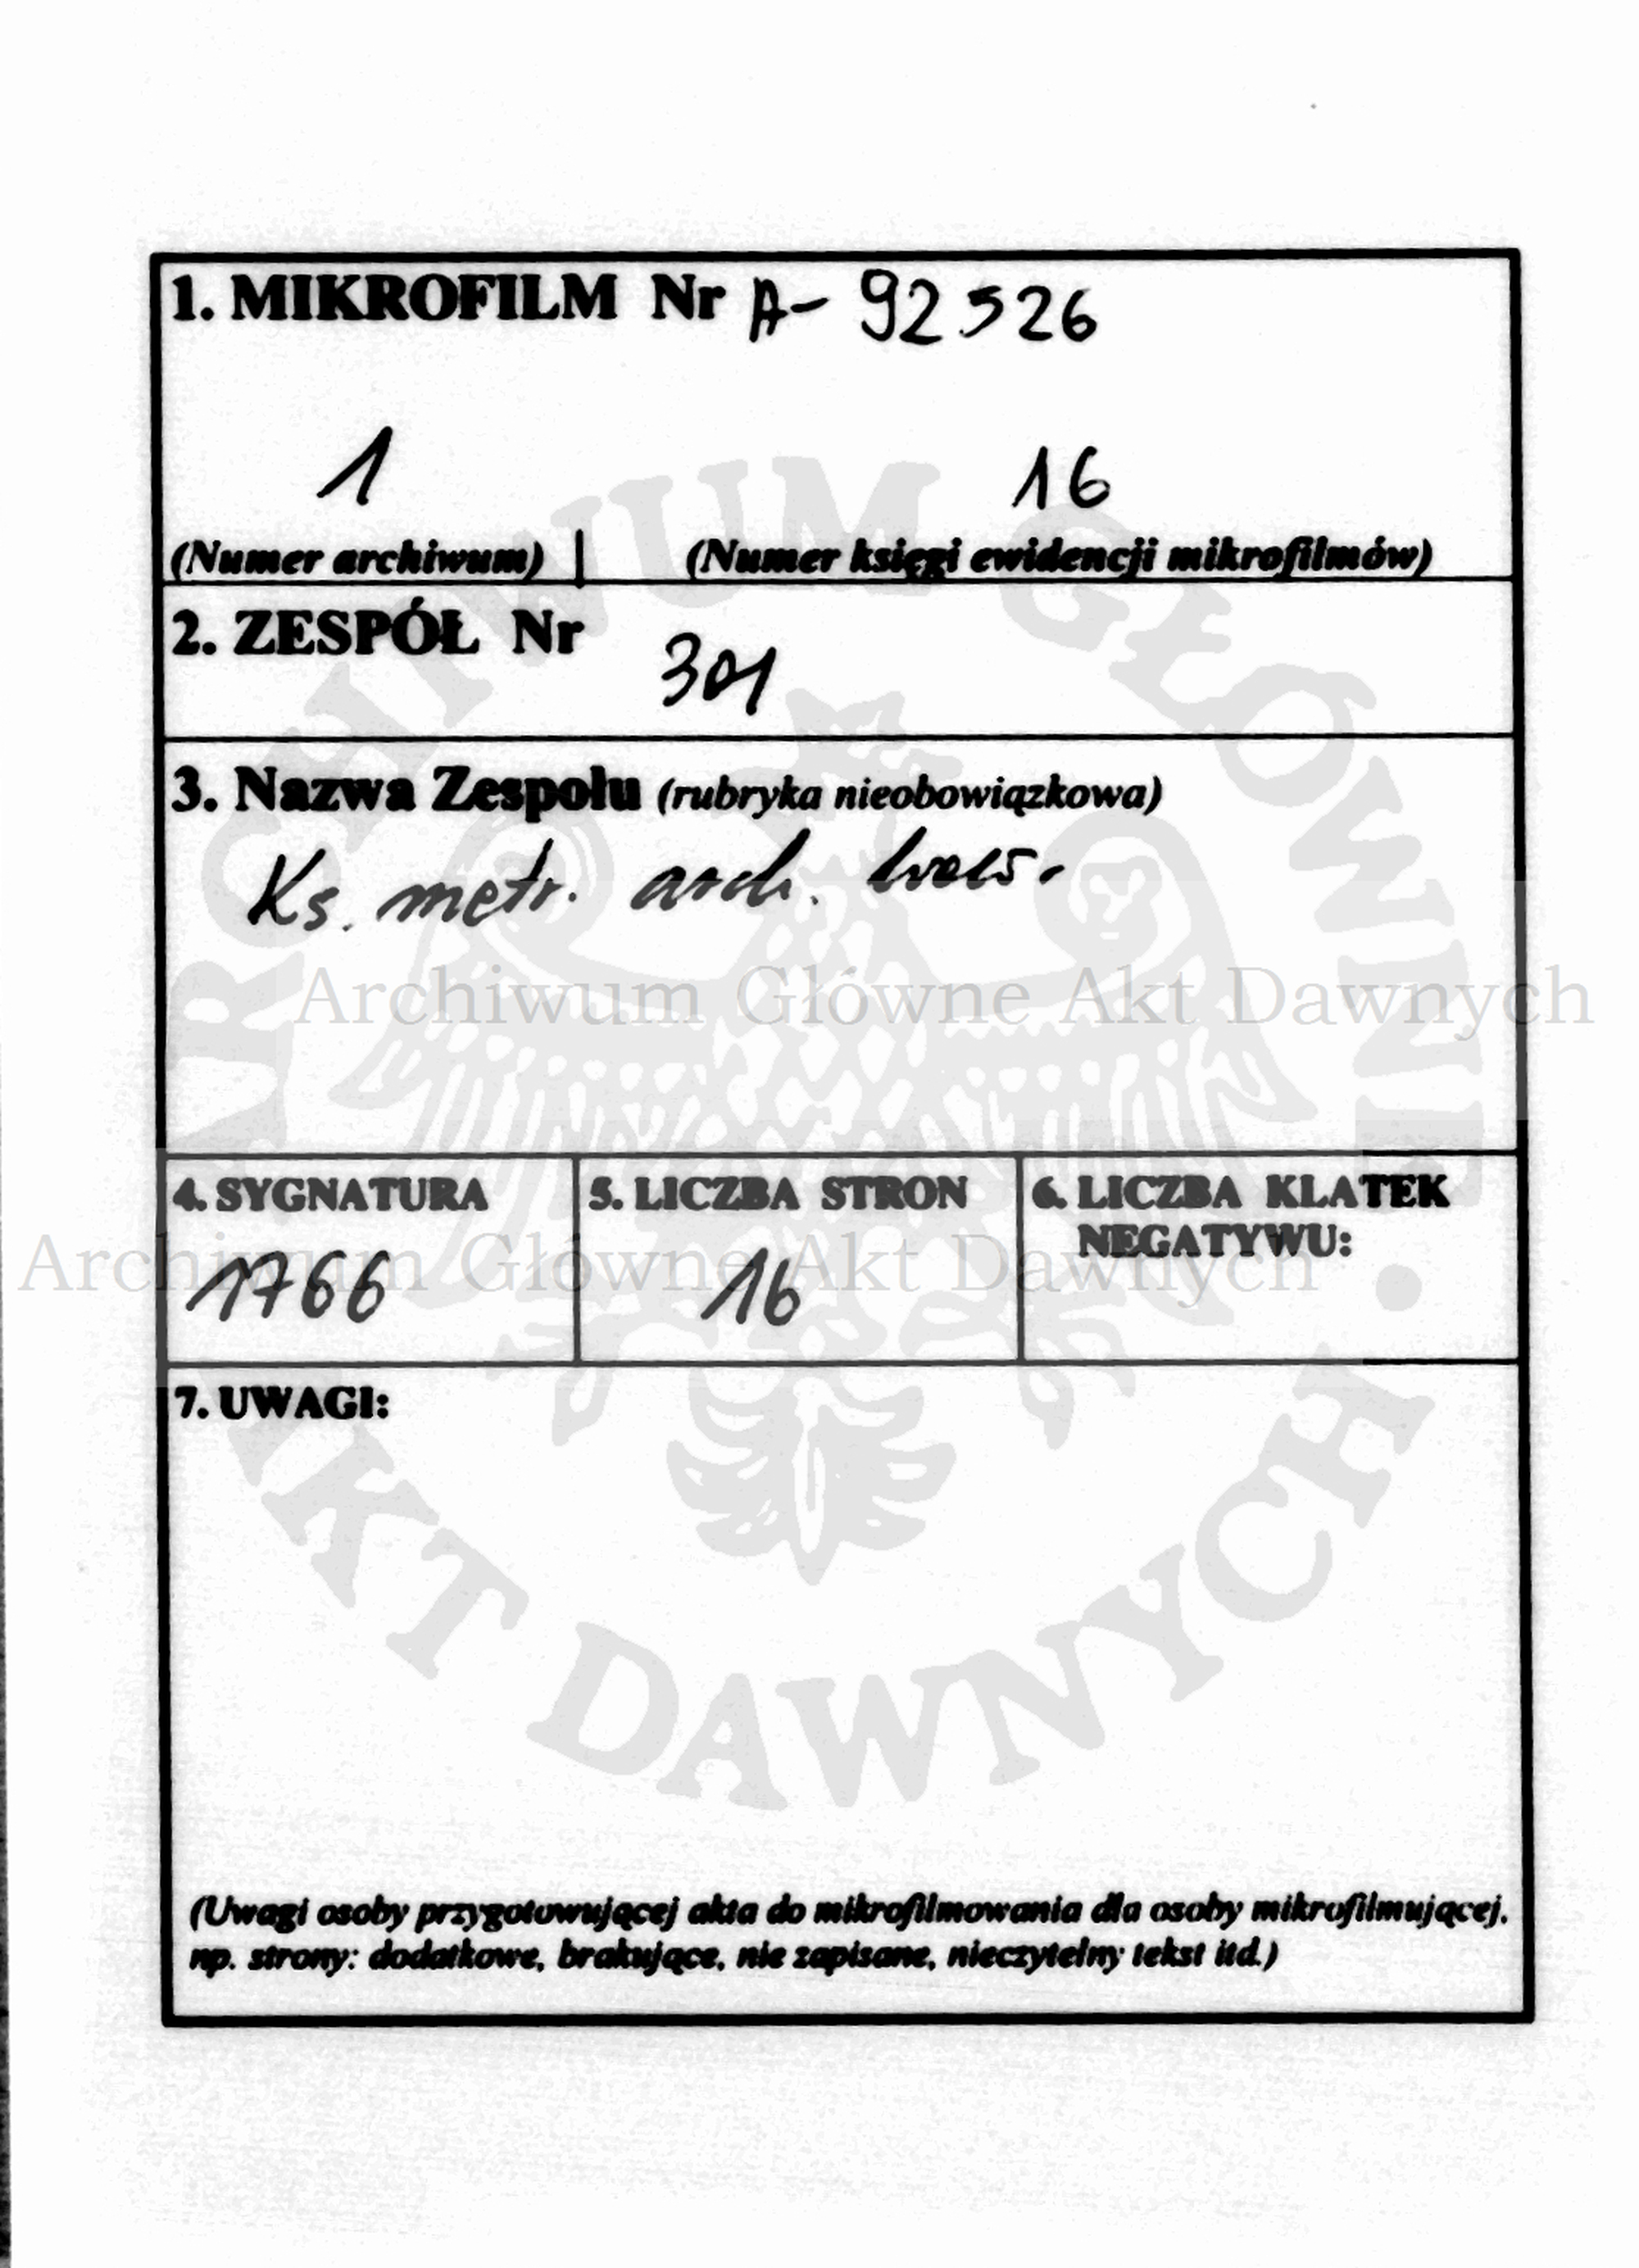 1. MIKROFILM Nr A- 92526
1 16
(Numer archiwum) | (Numer księgi ewidencji mikrofilmów)
2. ZESPÓŁ Nr
301
3. Nazwa Zespołu (rubryka nieobowiązkowa)
Ks. metr. arch.
Archiwum Główne Akt Dawnych
4. SYGNATURA 5. LICZBA STRON 6. LICZBA KLATEK
NEGATYWU:
Archiwum Główne Akt Dawnych
1766 16
7. UWAGI:
ARCHIWUM GŁÓWNE • AKT DAWNYCH •
(Uwagi osoby przygotowującej akta do mikrofilmowania dla osoby mikrofilmującej,
np. strony: dodatkowe, brakujące, nie zapisane, nieczytelny tekst itd.)